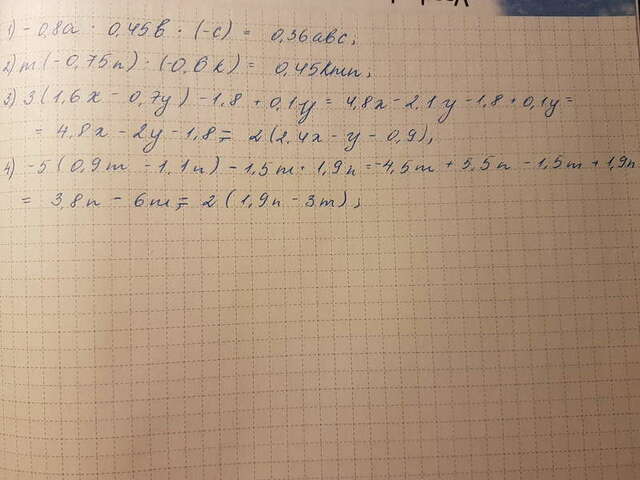 1) -0,8a · 0,45b · (-c) = 0,36abc;
2) m(-0,75n) · (-0,6k) = 0,45kmn;
3) 3(1,6x - 0,7y) - 1,8 + 0,1y = 4,8x - 2,1y - 1,8 + 0,1y =
= 4,8x - 2y - 1,8 = 2(2,4x - y - 0,9);
4) -5(0,9m - 1,1n) - 1,5m + 1,9n = -4,5m + 5,5n - 1,5m + 1,9n
= 3,8n - 6m = 2(1,9n - 3m);